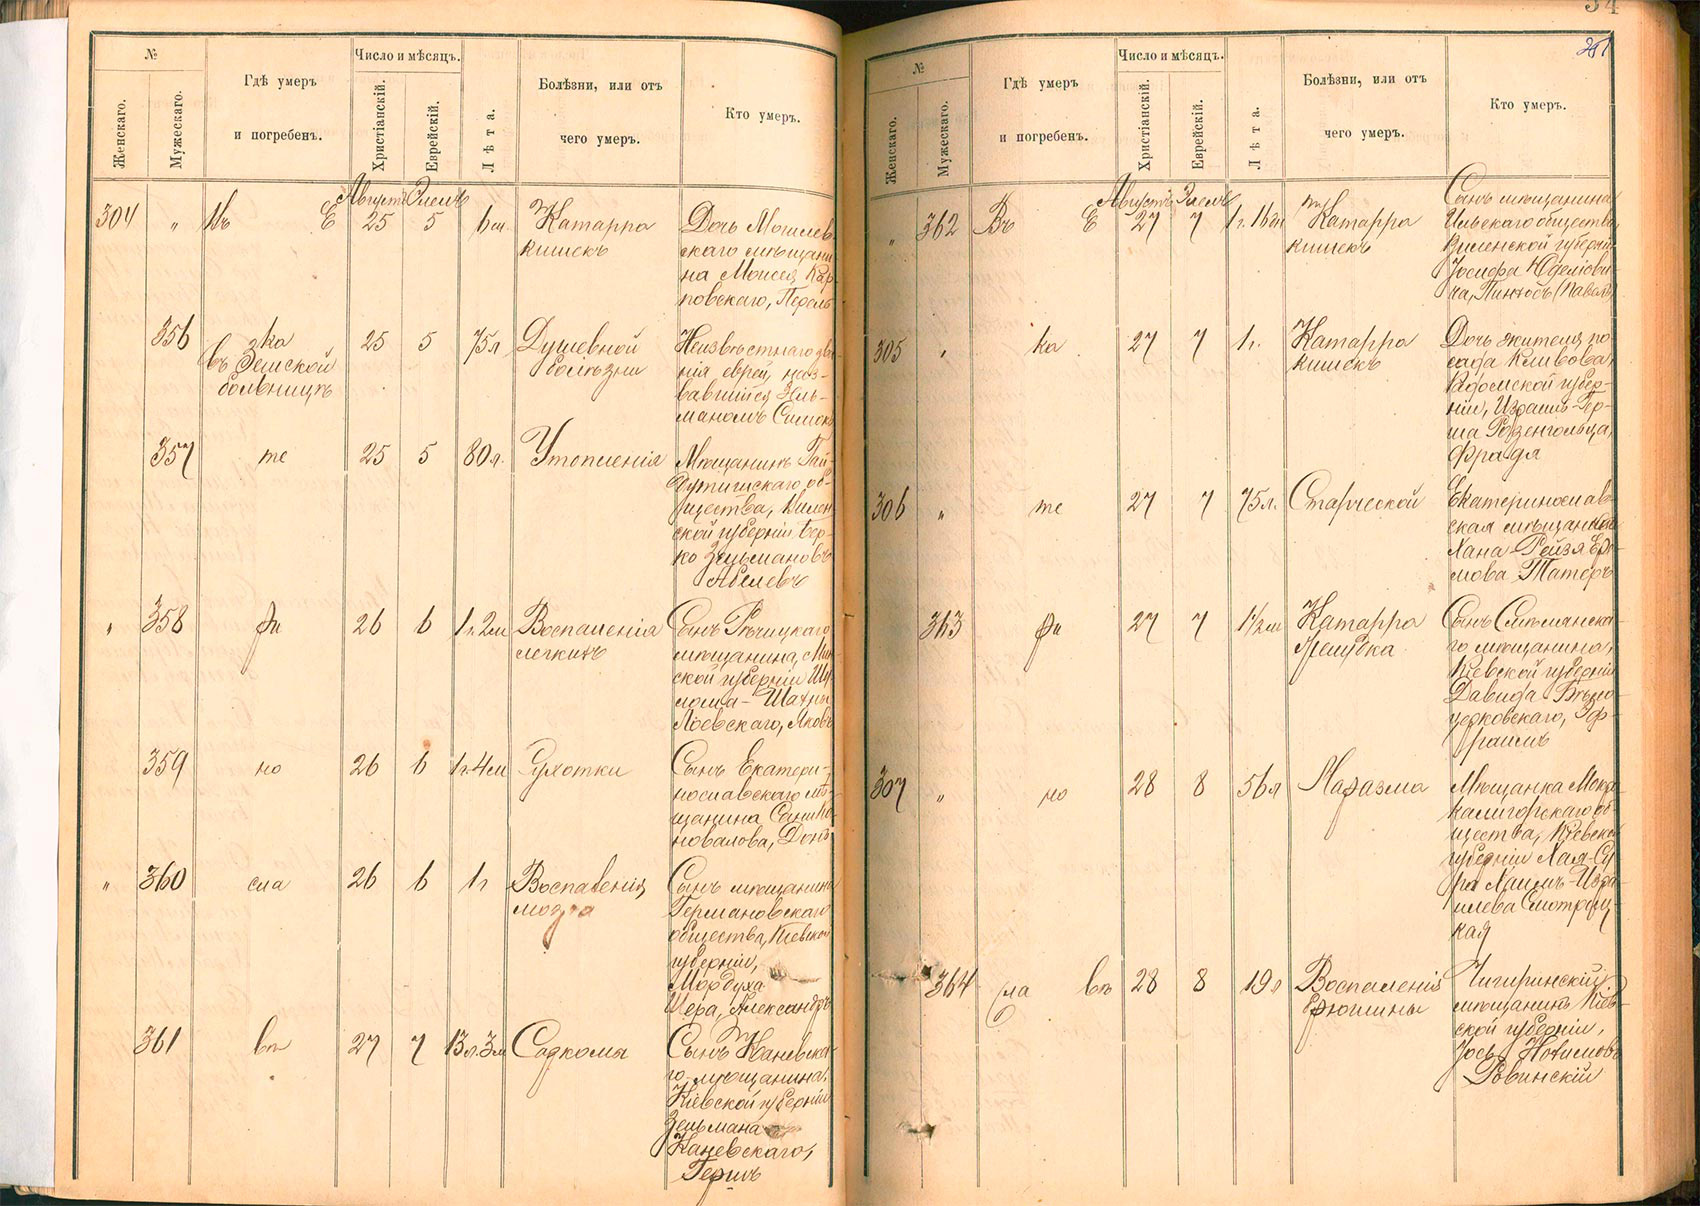 34
261
№
Женскаго.
Мужескаго.
Гдѣ умеръ
и погребенъ.
Число и мѣсяцъ.
Христіанскій.
Еврейскій.
Лѣта.
Болѣзни, или отъ
чего умеръ.
Кто умеръ.
Августъ Элелъ
304 " Въ Е 25 5 6 м. Катарра
кишекъ
Дочь Могилев
скаго мѣщани
на Моисея Кар
повскаго, Перель
356 ка 25 5 75 л Душевной
въ Земской
больницѣ
болѣзни
Неизвѣстнаго зва
нія еврей, наз
вавшійся Зель
маномъ
357 те 25 5 80 л. Утопленія
Мѣщанинъ Гай
дутишскаго об
щества, Вилен
ской губерніи Бер
ко Зельмановъ
Абелевъ
" 358 ри 26 6 1 г. 2 м Воспаленія
легкихъ
Сынъ Рѣчицкаго
мѣщанина, Мин
ской губерніи Шу
лома-Шахны
Лоевскаго, Яковъ
359 но 26 6 1 г. 4 м Сухотки
Сынъ Екатери-
нославскаго мѣ
щанина
новалова,
" 360 сла 26 6 1 г Воспаленія
мозга
Сынъ мѣщанина
Германовскаго
общества, Кіевской
губерніи,
Мордуха
Шера, Александръ
361 вѣ 27 7 13 л. 3 м Саркомы
Сынъ Каневска
го мѣщанина,
Кіевской губерніи
Зельмана
Каневскаго,
Гершъ
№
Женскаго.
Мужескаго.
Гдѣ умеръ
и погребенъ.
Число и мѣсяцъ.
Христіанскій.
Еврейскій.
Лѣта.
Болѣзни, или отъ
чего умеръ.
Кто умеръ.
Августъ Элелъ
" 362 Въ Е 27 7 1 г. Катарра
кишекъ
Сынъ мѣщанина
Ильскаго общества
Виленской губерніи
Іосифа Юделіови-
ча, Пинхосъ (Павелъ)
305 " ка 27 7 1 г. Катарра
кишекъ
Дочь жителя по
сада Климова,
Радомской губер-
ніи, Израиль-Гер-
ша Розенгольца,
Фрадя
306 " те 27 7 75 л. Старческой
Екатеринослав
ская мѣщанка
Хана-Рейзя Абра-
мова Татеръ
363 ри 27 7 1½ м Катарра
желудка
Сынъ Смѣлянска
го мѣщанина,
Кіевской губерніи
Давида Бѣло
церковскаго, Эф-
раимъ
307 " но 28 8 56 л Маразма
Мѣщанка Мокро
калигорскаго об
щества, Кіевской
губерніи Хая-Су
ра Хаимъ-Изра
илева Смотриц-
кая
364 сла въ 28 8 19 л Воспаленія
брюшины
Чигиринскій
мѣщанинъ Кіев-
ской губерніи,
Іось Нохимовъ
Ровинскій